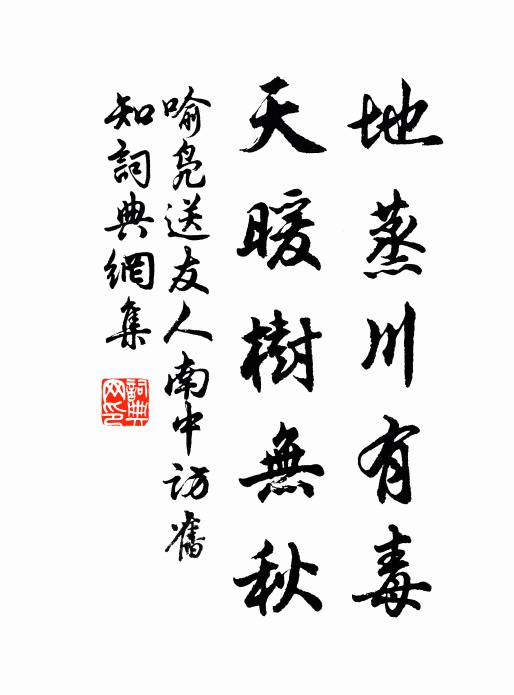 地蒸川有毒
天暖樹無秋
喻凫送友人南中訪舊
知詞典網集
詞典
网印